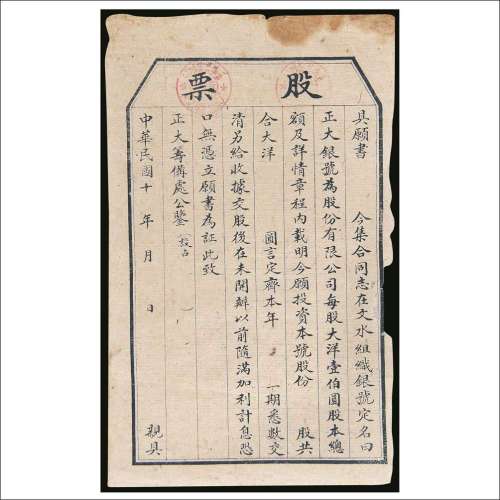 股票
具願書　今集合同志在文水組織銀號定名曰
正大銀號為股份有限公司每股大洋壹伯圓股本總
額及詳情章程內載明今願投資本號股份　股共
合大洋　圓言定齊本年　一期悉數交
清另給收據交股後在未開辦以前隨滿加利計息恐
口無憑立願書為証此致
正大籌備處公鑒
中華民國十　年　月　日　親具